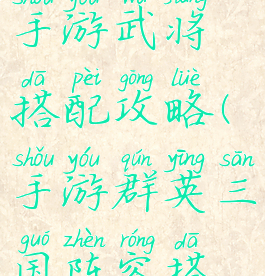 shǒu yóu wǔ jiàng
手游武将
dā pèi gōng lüè
搭配攻略(
shǒu yóu qún yīng sān
手游群英三
guó zhèn róng dā
国阵容搭